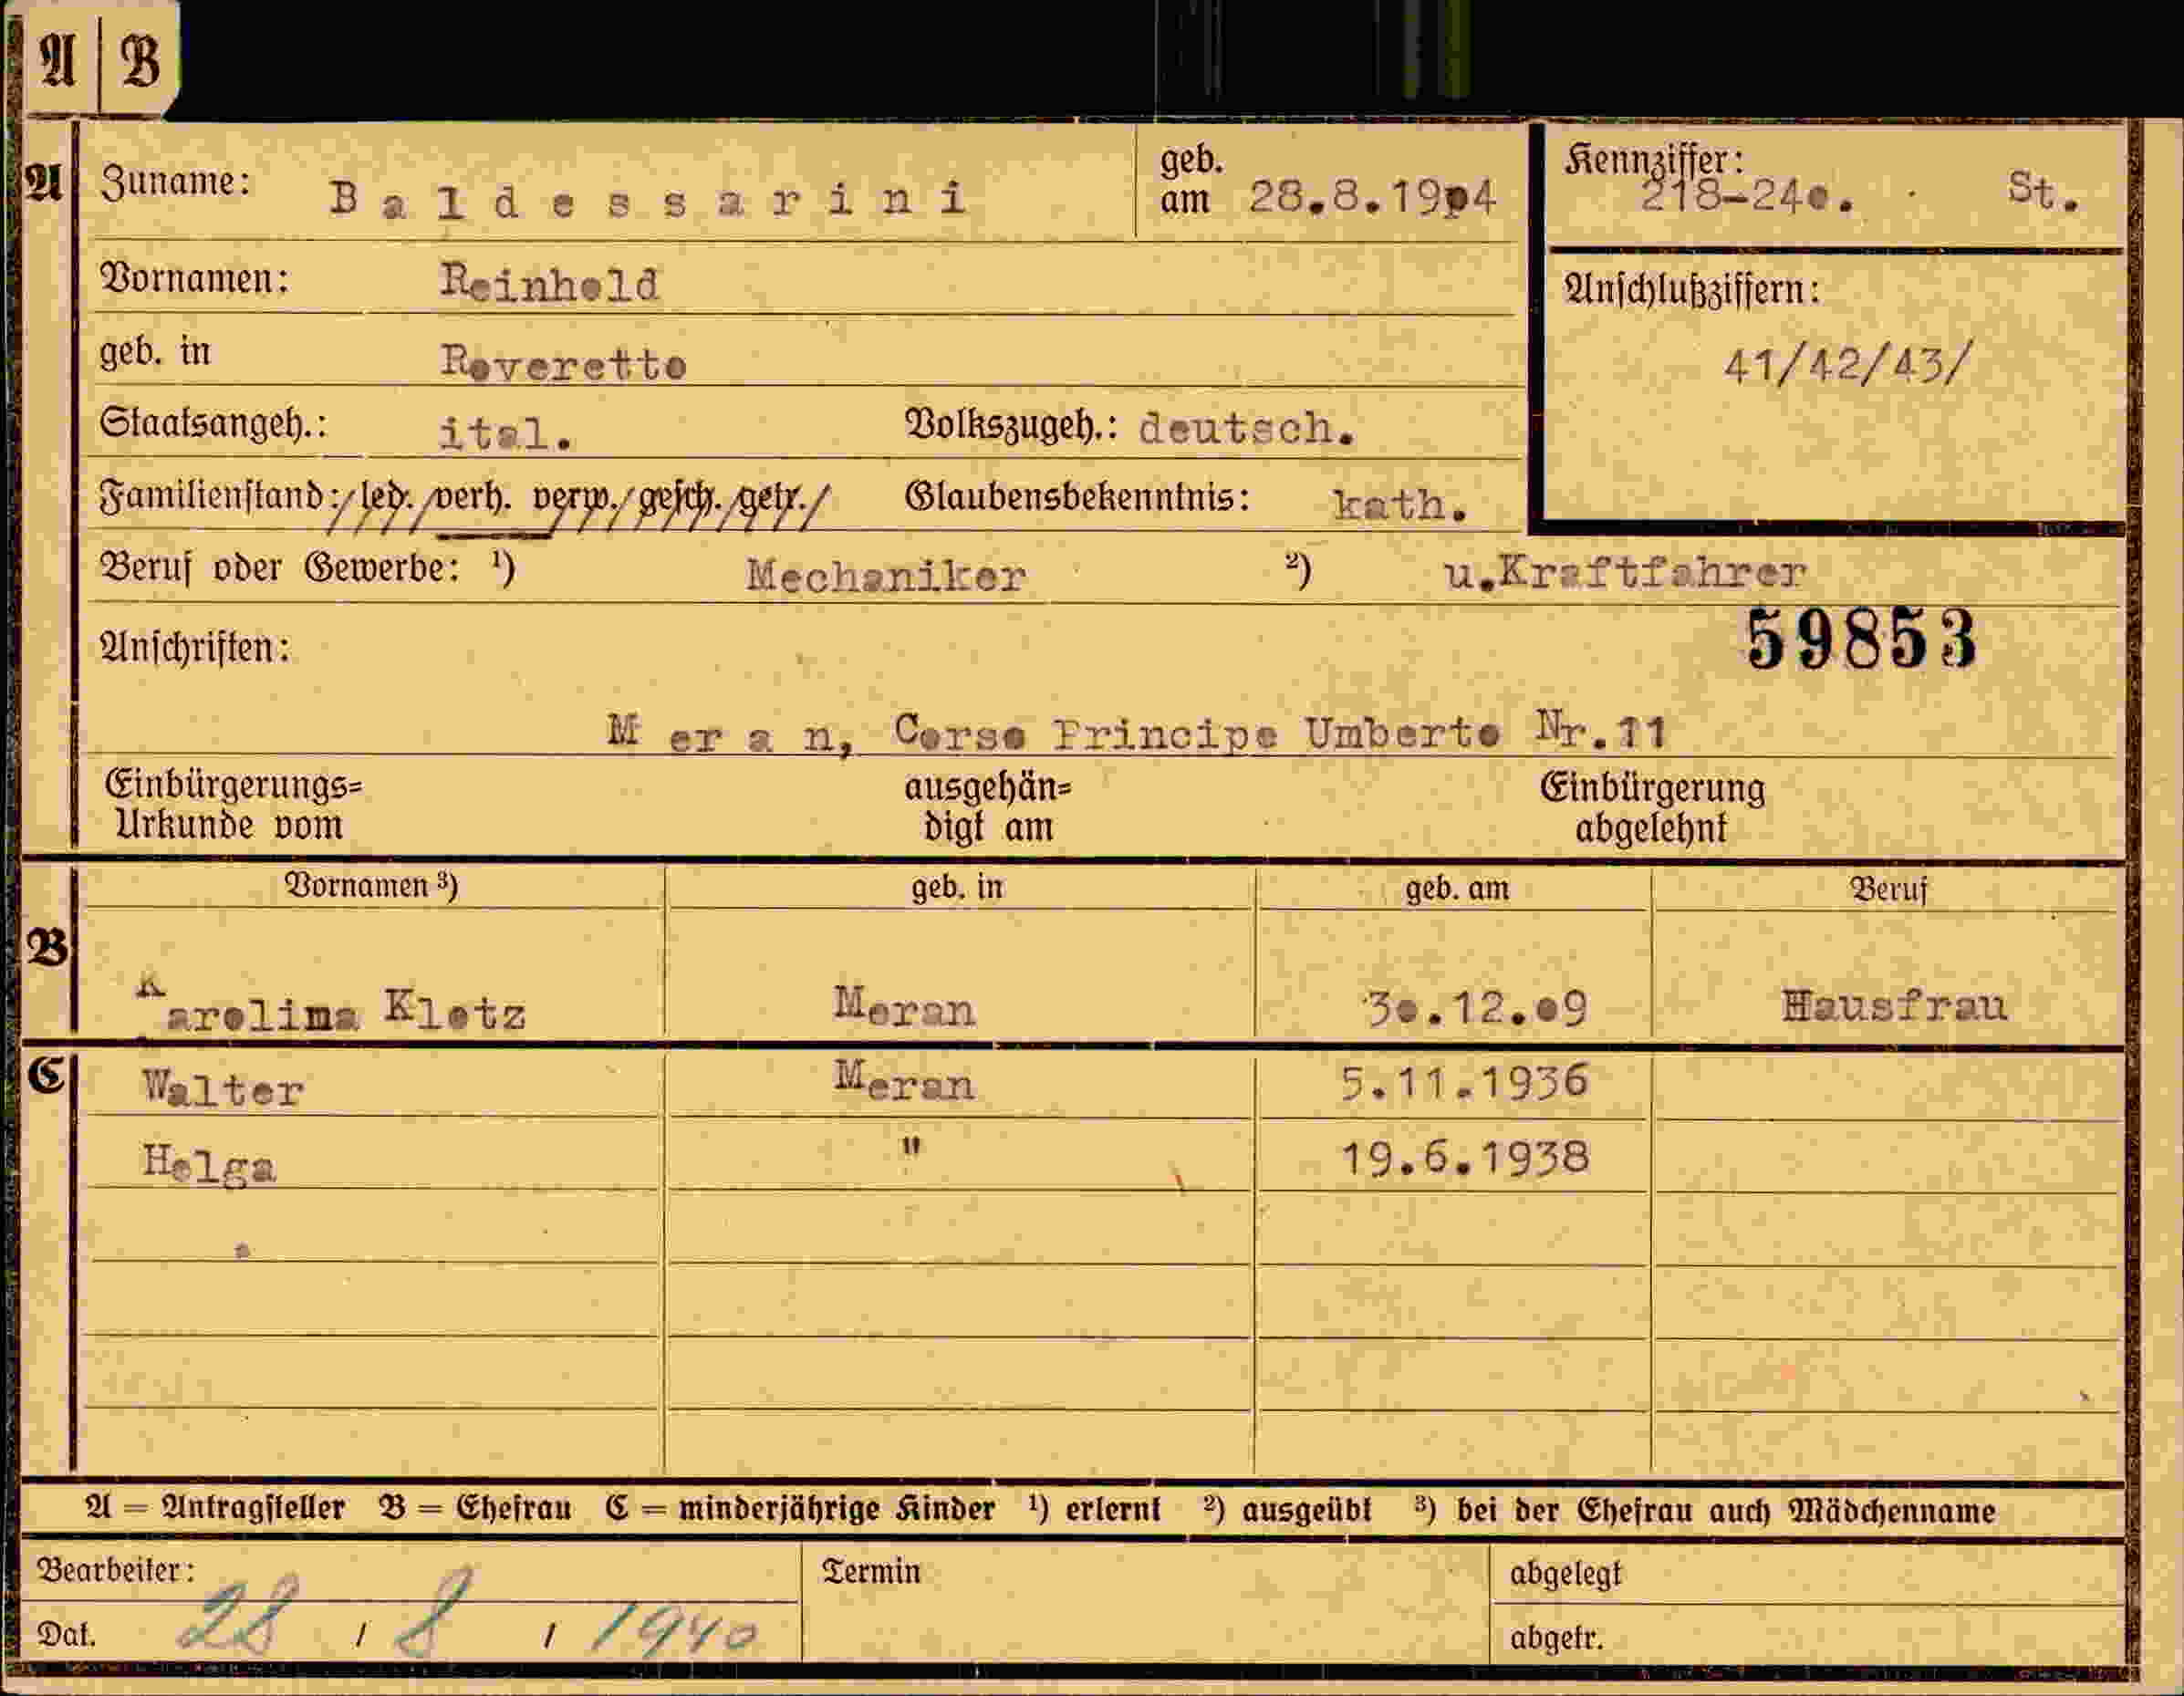 A B
A Zuname: Baldessarini geb. am 28.8.1904 Kennziffer: 218-240. St.
Vornamen: Reinhold
Anschlußziffern:
geb. in Roveretto 41/42/43/
Staatsangeh.: ital. Volkszugeh.: deutsch.
Familienstand: led. verh. verw. gesch. getr. Glaubensbekenntnis: kath.
Beruf oder Gewerbe: ¹) Mechaniker ²) u.Kraftfahrer
Anschriften: 59853
Meran, Corso Principe Umberto Nr.11
Einbürgerungs= ausgehän= Einbürgerung
Urkunde vom digt am abgelehnt
Vornamen ³) geb. in geb. am Beruf
B
Karolina Klotz Meran 30.12.09 Hausfrau
C Walter Meran 5.11.1936
Helga " 19.6.1938
A = Antragsteller B = Ehefrau C = minderjährige Kinder ¹) erlernt ²) ausgeübt ³) bei der Ehefrau auch Mädchenname
Bearbeiter: Termin abgelegt
Dat. 28 / 8 / 1940 abgetr.